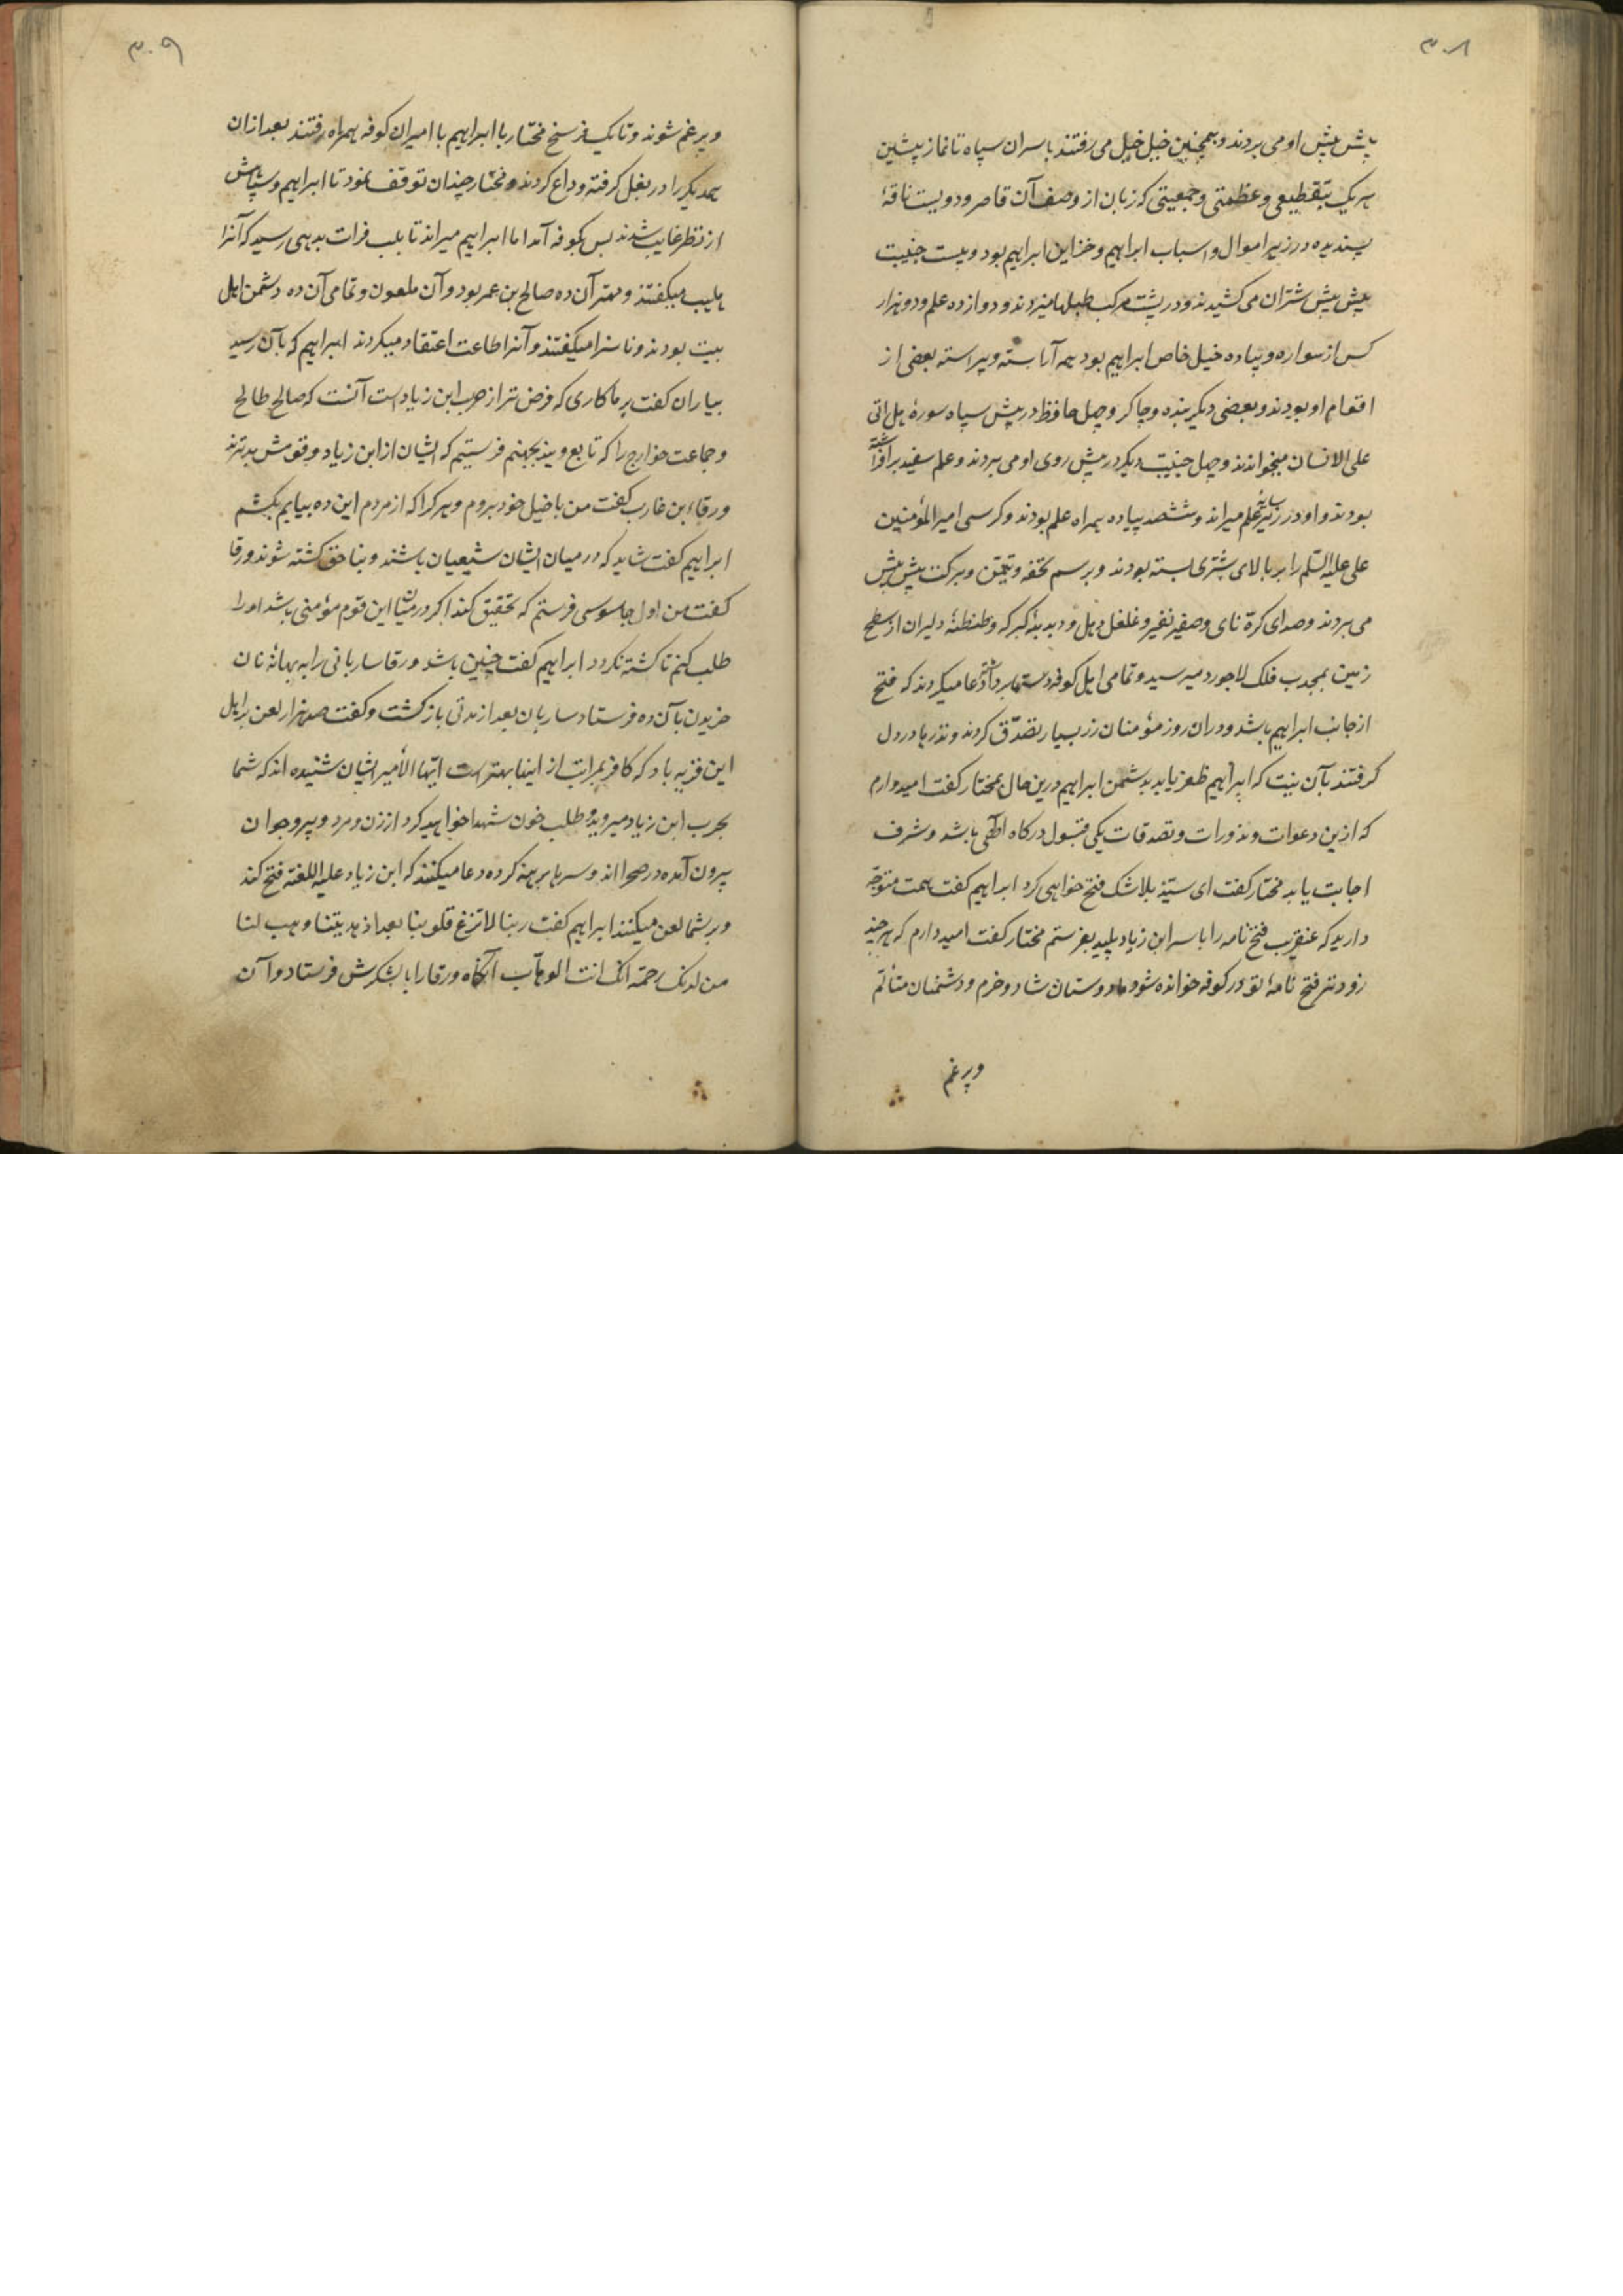 ۳۰۸
پیش پیش او می بردند و همچنین خیل خیل می رفتند با سران سپاه تا نماز پیشین
هر یک بتقطیعی و عظمتی و جمعیتی که زبان از وصف آن قاصر و دویست ناقهٔ
پسندیده در زیر اموال و اسباب ابراهیم و خزاین ابراهیم بود و بیست جنیبت
پیش پیش شتران می کشیدند و در پشت مرکب طبلها میزدند و دوازده علم و دو هزار
کس از سواره و پیاده خیل خاص ابراهیم بود همه آراسته و پیراسته بعضی از
اقوام او بودند و بعضی دیگر بنده و چاکر و چهل حافظ در پیش سپاه سورهٔ هل اتی
علی الانسان میخواندند و چهل جنیبت دیگر در پیش روی او می بردند و علم سفید برافراشته
بودند و او در زیر سایهٔ علم میراند و ششصد پیاده همراه علم بودند و کرسی امیر المؤمنین
علی علیه السّلم را بر بالای شتری بسته بودند و برسم تحفه و تیمّن و برکت پیش پیش
می بردند و صدای کرّه نای و صفیر نفیر و غلغل دهل و دبدبهٔ کبرکه و طنطنهٔ دلیران از سطح
زمین بمحدب فلک لاجورد میرسید و تمامی اهل کوفه دستها برداشته دعا میکردند که فتح
از جانب ابراهیم باشد و در ان روز مؤمنان زر بسیار تصدّق کردند و نذر ها در دل
گرفتند بآن نیت که ابراهیم ظفر یابد بدشمن ابراهیم درین حال بمختار گفت امیدوارم
که ازین دعوات و نذورات و تصدقات یکی قبول درکاه الهی باشد و شرف
اجابت یابد مختار گفت ای سیّد بلاشک فتح خواهی کرد ابراهیم گفت همت متوجّه
دارید که عنقریب فتح نامه را با سر ابن زیاد پلید بفرستم مختار گفت امید دارم که هر چند
زودتر فتح نامهٔ تو در کوفه خوانده شود و ما دوستان شاد و خرم و دشمنان متألم
و پر غم
۳۰۹
و پر غم شوند و تا یک فرسخ مختار با ابراهیم با امیران کوفه همراه رفتند بعد از ان
همدیگر را در بغل گرفته وداع کردند و مختار چندان توقف نمود تا ابراهیم و سپاهش
از نظر غایب شدند پس بکوفه آمد اما ابراهیم میراند تا بلب فرات بدهی رسید که آنرا
هلیب میگفتند و مهتر آن ده صالح بن عمر بود و آن ملعون و تمامی آن ده دشمن اهل
بیت بودند و ناسزا میگفتند و آنرا طاعت اعتقاد میکردند ابراهیم که بآن رسید
بیاران گفت بر ما کاری که فرض تر از حرب ابن زیاد است آنست که صالح طالح
و جماعت خوارج را که تابع ویند بجهنم فرستیم که ایشان از ابن زیاد و قومش بدترند
ورقاء بن غارب گفت من با خیل خود بروم و هر کرا که از مردم این ده بیابم بکشم
ابراهیم گفت شاید که در میان ایشان شیعیان باشند و بناحق کشته شوند ورقا
گفت من اول جاسوسی فرستم که تحقیق کند اگر در میان این قوم مؤمنی باشد او را
طلب کنم تا کشته نگردد ابراهیم گفت چنین باشد ورقا ساربانی را به بهانهٔ نان
خریدن بآن ده فرستاد ساربان بعد از مدتی بازگشت و گفت صد هزار لعن بر اهل
این قریه باد که کافر بمراتب از اینها بهتر است ایّها الأمیر ایشان شنیده اند که شما
بحرب ابن زیاد میروید و طلب خون شهدا خواهید کرد از زن و مرد و پیر و جوان
بیرون آمده در صحرا اند و سرها برهنه کرده دعا میکنند که ابن زیاد علیه اللعنه فتح کند
و بر شما لعن میکنند ابراهیم گفت ربنا لا تزغ قلوبنا بعد اذ هدیتنا و هب لنا
من لدنک رحمة انّک انت الوهّاب آنگاه ورقا را با لشکرش فرستاد و آن